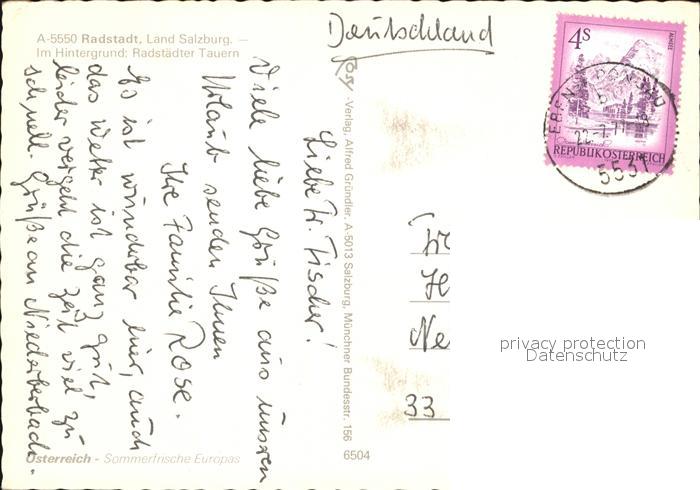 A-5550 Radstadt, Land Salzburg. —
Im Hintergrund: Radstädter Tauern
Deutschland
4S
ALMSEE
REPUBLIK ÖSTERREICH
5531
Liebe Fr. Fischer!
Viele liebe Grüße aus unsren
Urlaub senden Ihnen
Ihre Familie Rose.
Es ist wunderbar hier, auch
das Wetter ist ganz gut,
leider vergeht die Zeit viel zu
schnell. Grüße an Niederberbach.
Cosy · Verlag, Alfred Gründler, A-5013 Salzburg, Münchner Bundesstr. 156
6504
Österreich - Sommerfrische Europas
Fr
H
Ne
33
privacy protection
Datenschutz